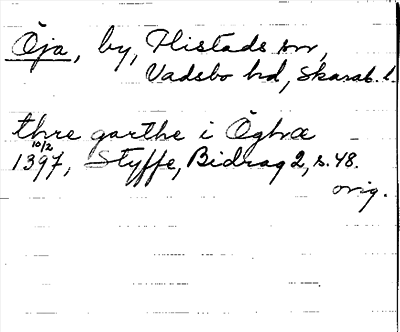 Öja, by, Flistads sn,
Vadsbo hd, Skarab. l.
thre garthe i Öghræ
10/2
1397, Styffe, Bidrag 2, s. 48.
orig.